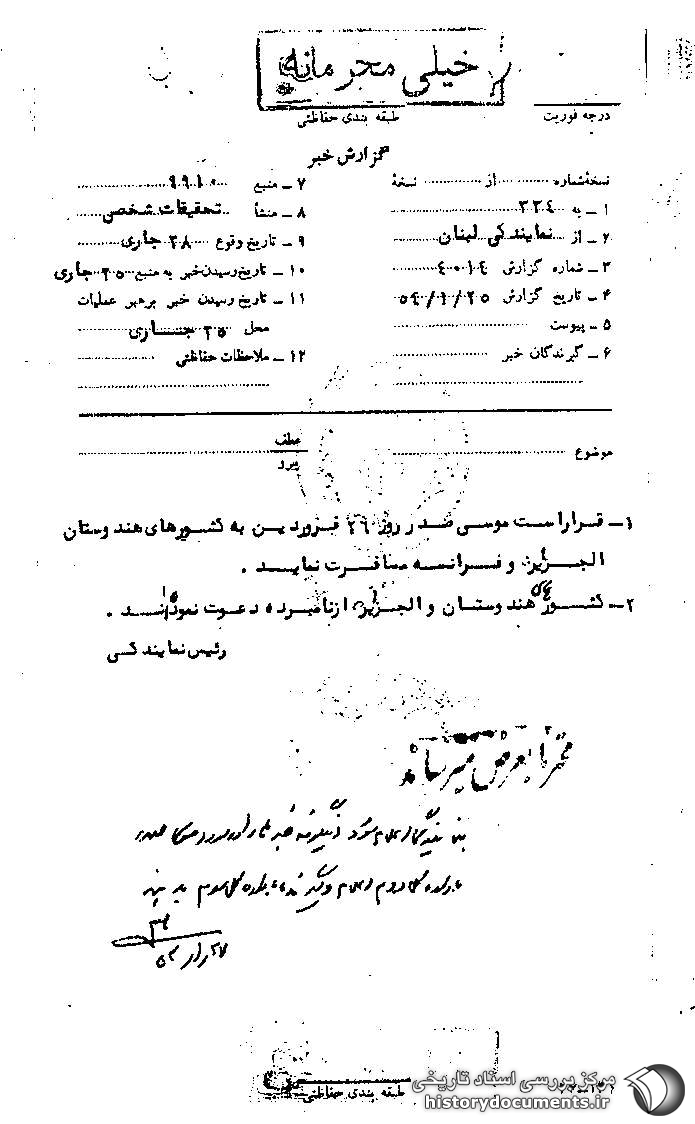 خیلی محرمانه
طبقه بندی حفاظتی
درجه فوریت
گزارش خبر
نسخهٔ شماره ............ از ............ نسخهٔ
۱ ـ به ۳۲۴
۲ ـ از نمایندگی لبنان
۳ ـ شماره گزارش ۴۰۱۴
۴ ـ تاریخ گزارش ۵۴/۱/۲۵
۵ ـ پیوست
۶ ـ گیرندگان خبر
۷ ـ منبع ۹۹۱۰
۸ ـ منشأ تحقیقات شخصی
۹ ـ تاریخ وقوع ۲۸ جاری
۱۰ ـ تاریخ رسیدن خبر به منبع ۲۵ جاری
۱۱ ـ تاریخ رسیدن خبر برهبر عملیات
محل ۲۵ جاری
۱۲ ـ ملاحظات حفاظتی
موضوع
عطف
پیرو
۱- قرار است موسی صدر روز ۲۶ فروردین به کشورهای هندوستان
الجزایر و فرانسه مسافرت نماید .
۲- کشورهای هندوستان و الجزایر از نامبرده دعوت نموده‌اند .
رئیس نمایندگی
محترما بعرض میرساند
طبقه بندی حفاظتی
مرکز بررسی اسناد تاریخی
historydocuments.ir